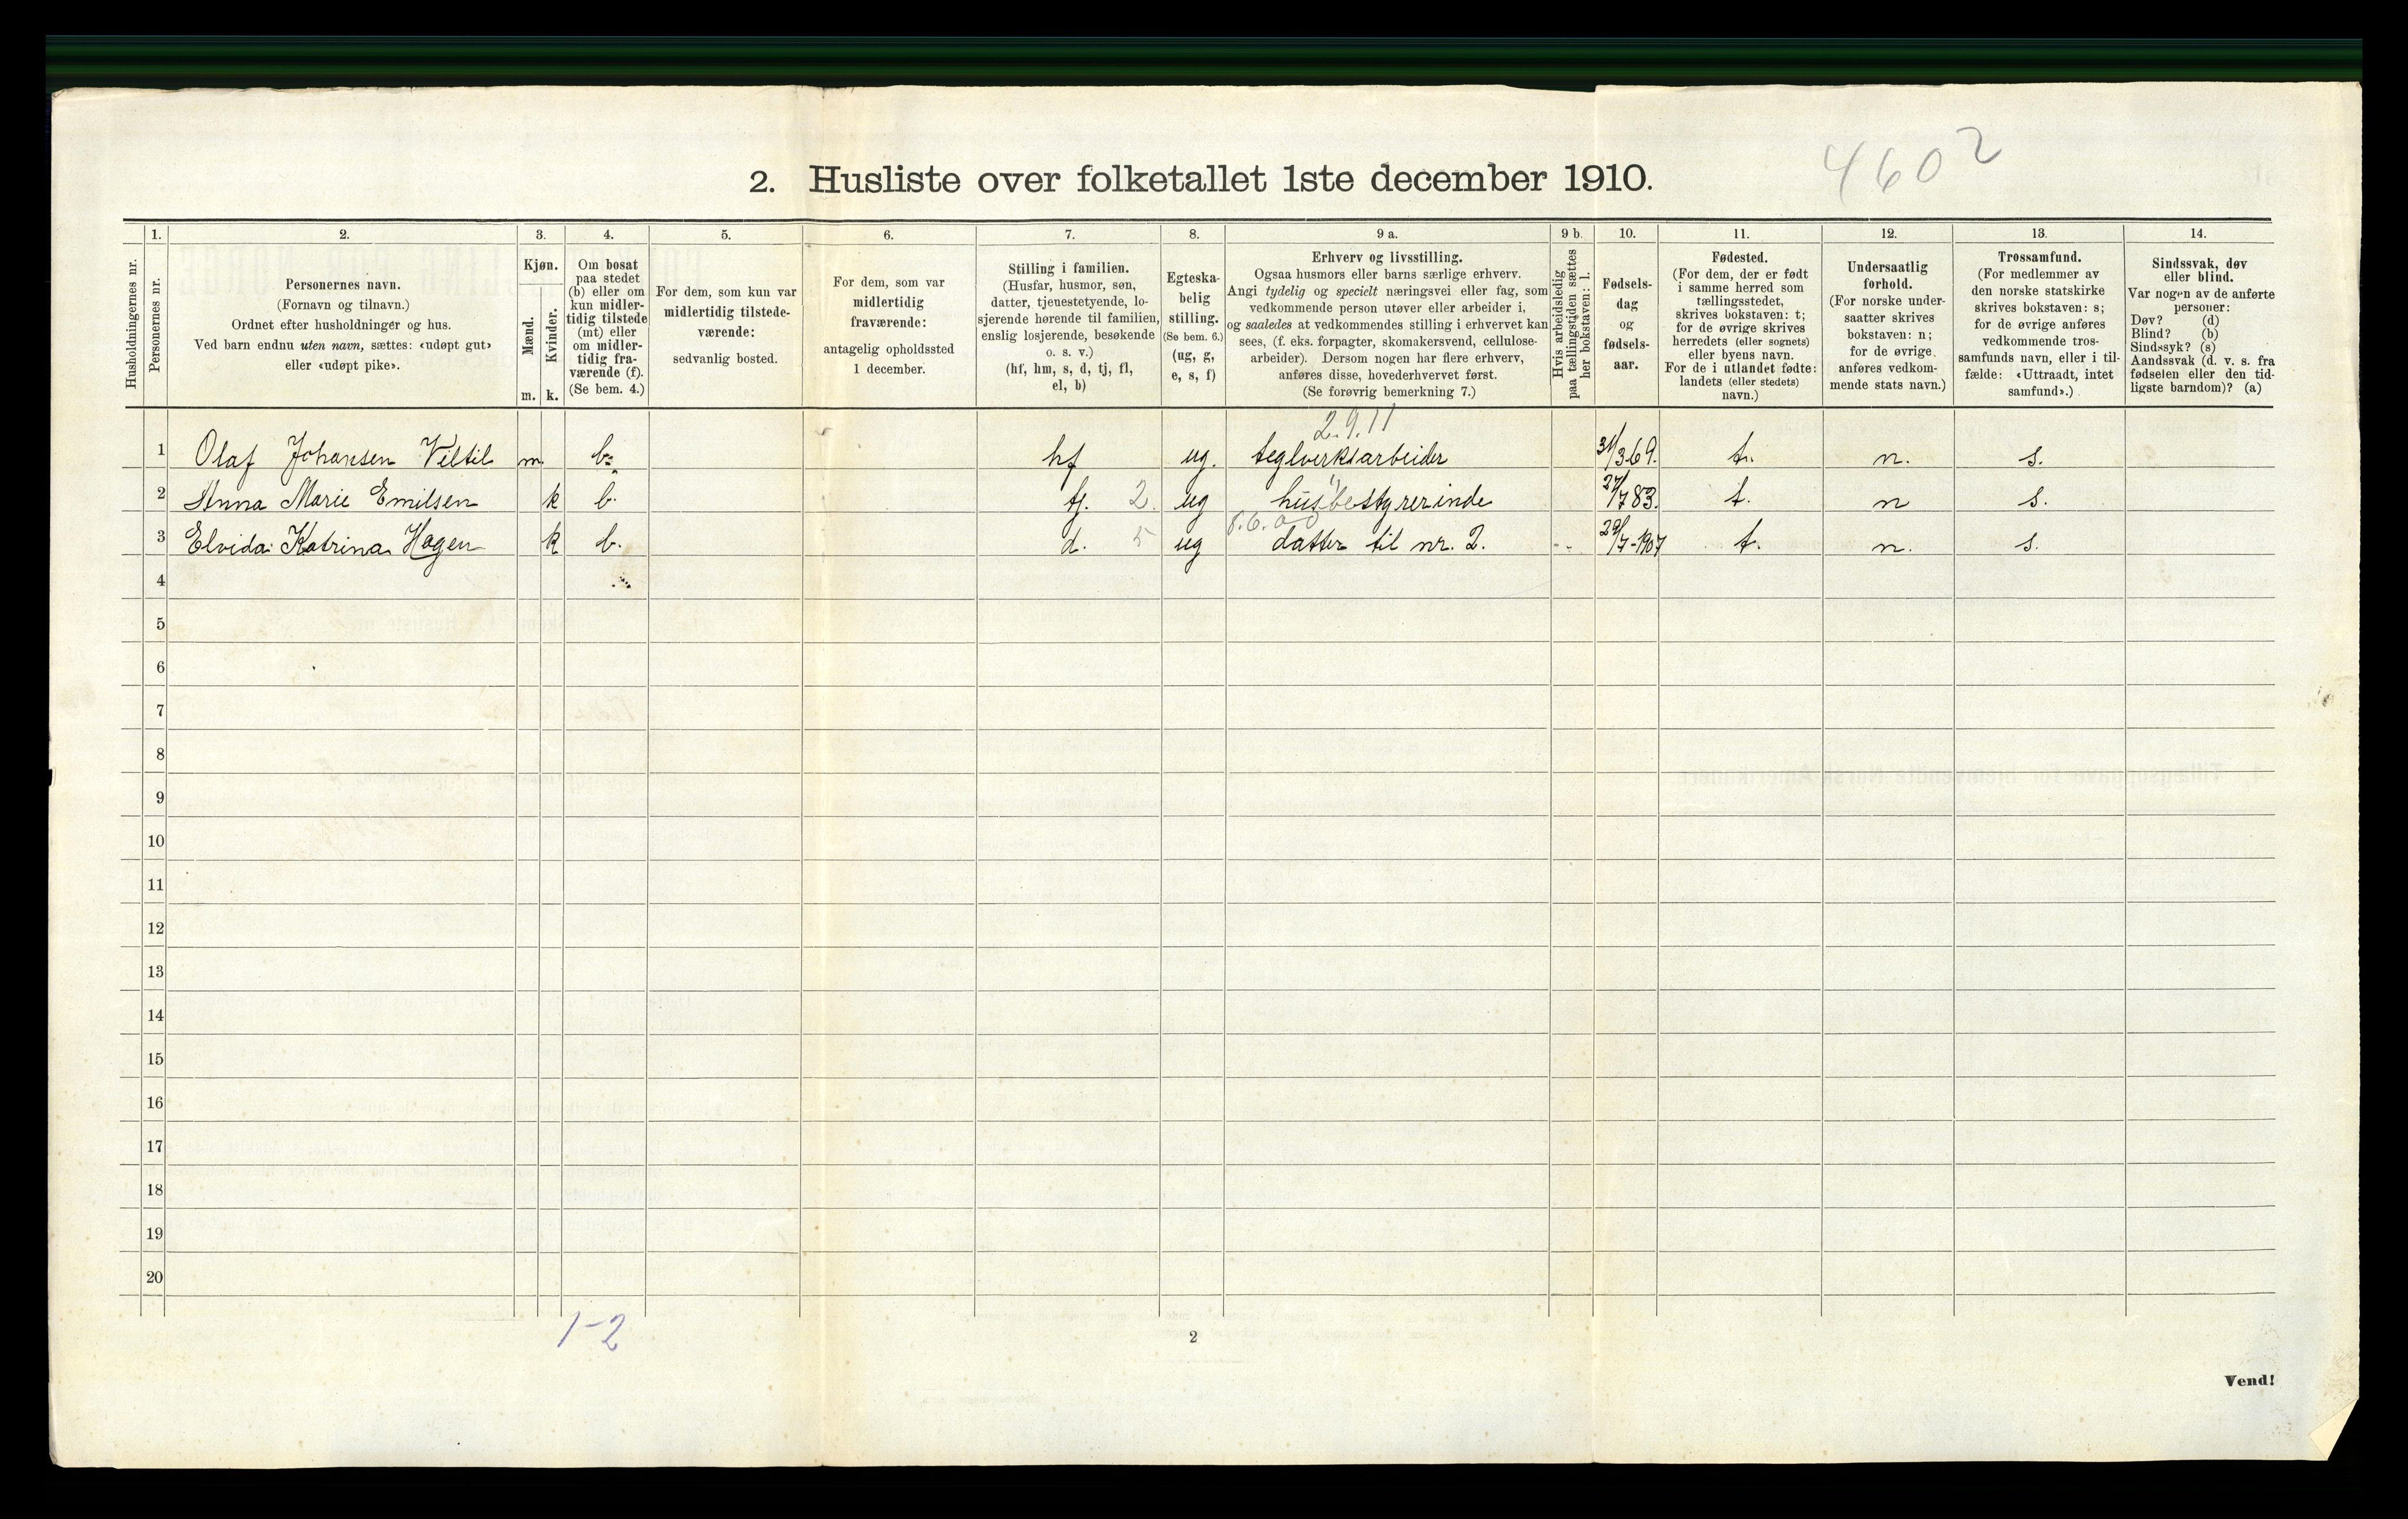 4602
2. Husliste over folketallet 1ste december 1910.
Husholdningernes nr.
1.
Personernes nr.
2.
Personernes navn.
(Fornavn og tilnavn.)
Ordnet efter husholdninger og hus.
Ved barn endnu uten navn, sættes: «udøpt gut»
eller «udøpt pike».
3.
Kjøn.
Mænd.
Kvinder.
m. k.
4.
Om bosat
paa stedet
(b) eller om
kun midler-
tidig tilstede
(mt) eller
om midler-
tidig fra-
værende (f).
(Se bem. 4.)
5.
For dem, som kun var
midlertidig tilstede-
værende:
sedvanlig bosted.
6.
For dem, som var
midlertidig
fraværende:
antagelig opholdssted
1 december.
7.
Stilling i familien.
(Husfar, husmor, søn,
datter, tjenestetyende, lo-
sjerende hørende til familien,
enslig losjerende, besøkende
o. s. v.)
(hf, hm, s, d, tj, fl,
el, b)
8.
Egteska-
belig
stilling.
(Se bem. 6.)
(ug, g,
e, s, f)
9 a.
Erhverv og livsstilling.
Ogsaa husmors eller barns særlige erhverv.
Angi tydelig og specielt næringsvei eller fag, som
vedkommende person utøver eller arbeider i,
og saaledes at vedkommendes stilling i erhvervet kan
sees, (f. eks. forpagter, skomakersvend, cellulose-
arbeider). Dersom nogen har flere erhverv,
anføres disse, hovederhvervet først.
(Se forøvrig bemerkning 7.)
9 b.
Hvis arbeidsledig
paa tællingstiden sættes
her bokstaven: l.
10.
Fødsels-
dag
og
fødsels-
aar.
11.
Fødested.
(For dem, der er født
i samme herred som
tællingsstedet,
skrives bokstaven: t;
for de øvrige skrives
herredets (eller sognets)
eller byens navn.
For de i utlandet fødte:
landets (eller stedets)
navn.)
12.
Undersaatlig
forhold.
(For norske under-
saatter skrives
bokstaven: n;
for de øvrige
anføres vedkom-
mende stats navn.)
13.
Trossamfund.
(For medlemmer av
den norske statskirke
skrives bokstaven: s;
for de øvrige anføres
vedkommende tros-
samfunds navn, eller i til-
fælde: «Uttraadt, intet
samfund».)
14.
Sindssvak, døv
eller blind.
Var nogen av de anførte
personer:
Døv? (d)
Blind? (b)
Sindssyk? (s)
Aandssvak (d. v. s. fra
fødselen eller den tid-
ligste barndom)? (a)
2.9.11
1 Olaf Johansen Veltil m. b. hf ug. teglverksarbeider 31/3 69. t. n. s.
2 Anna Marie Emilsen k b. tj. 2. ug husbestyrerinde 27/7 83. t. n s.
3 Elvida Katrina Hagen k b. d. 5 ug datter til nr. 2. 29/7-1907 t. n. s.
4
5
6
7
8
9
10
11
12
13
14
15
16
17
18
19
20
1-2
2
Vend!